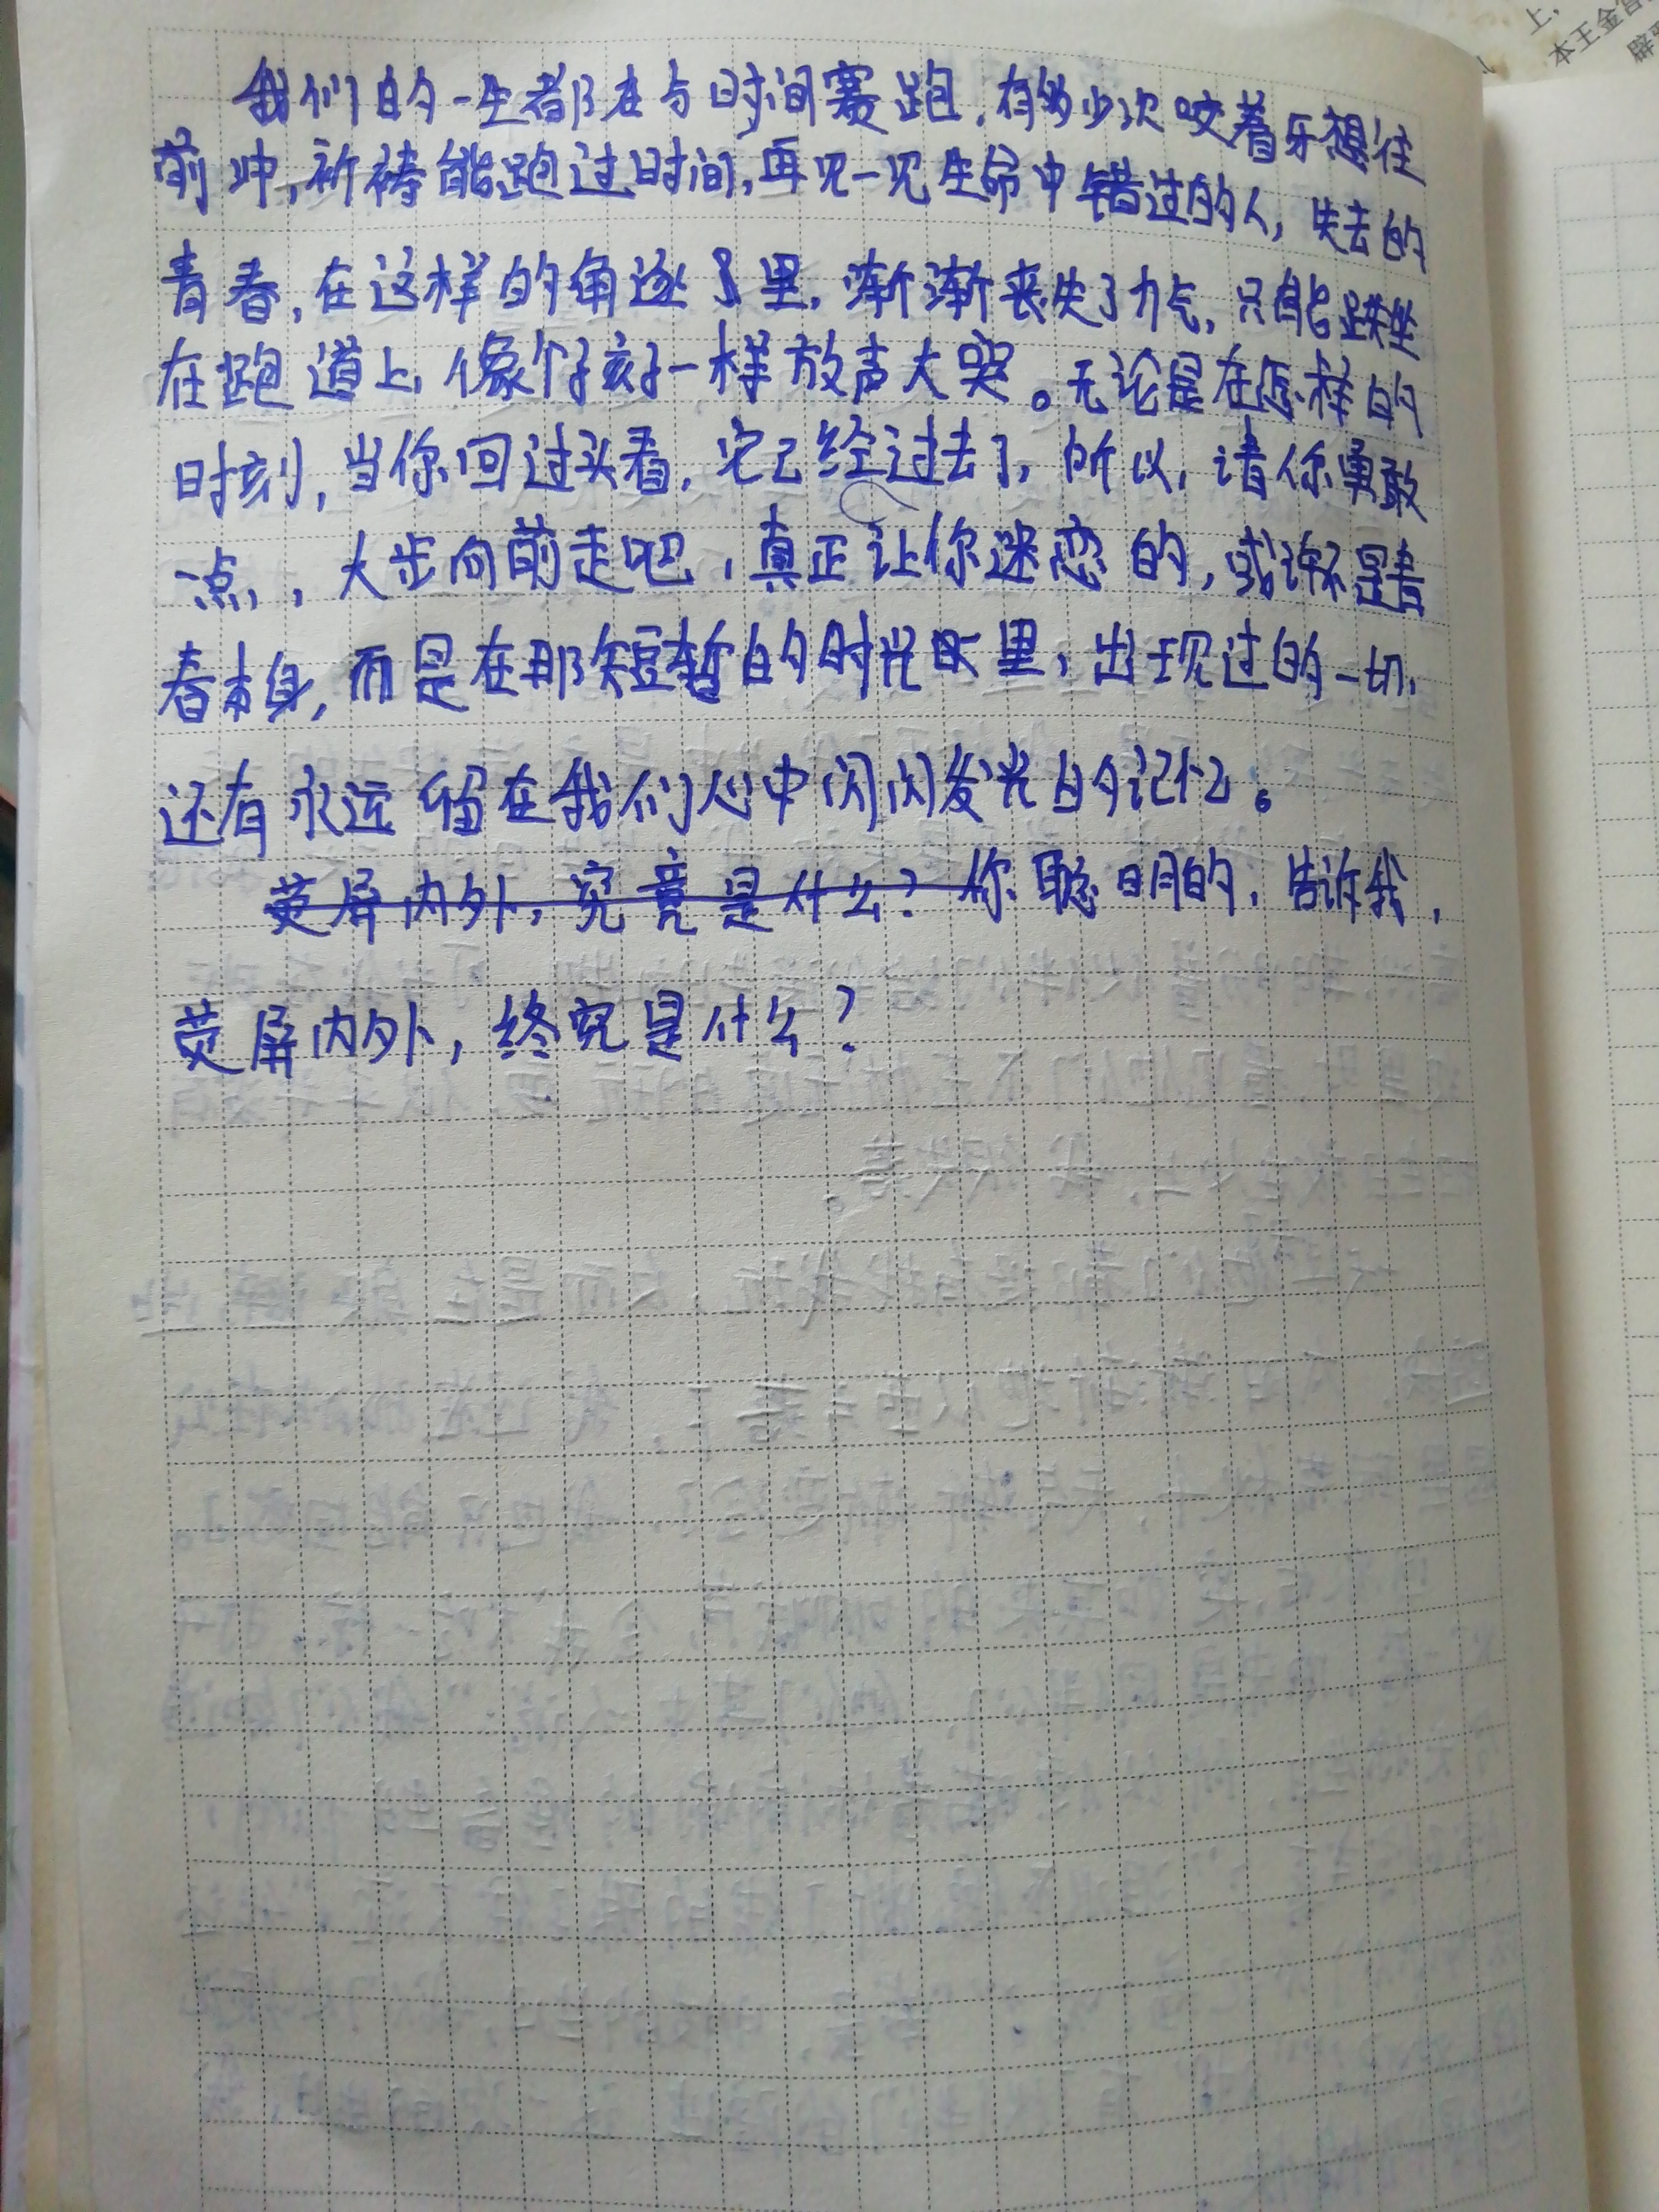 我们的一生都在与时间赛跑,有多少次咬着牙想往
前冲,祈祷能跑过时间,再见一见生命中错过的人,失去的
青春,在这样的角逐里,渐渐丧失了力气,只能跌坐
在跑道上,像个孩子一样放声大哭。无论是在怎样的
时刻,当你回过头看,它已经过去了,所以,请你勇敢
点,大步向前走吧,真正让你迷恋的,或许不是青
春本身,而是在那短暂的时光里,出现过的一切,
还有永远留在我们心中闪闪发光的记忆。
荧屏内外,究竟是什么?你聪明的,告诉我,
荧屏内外,终究是什么?
上,
本王金